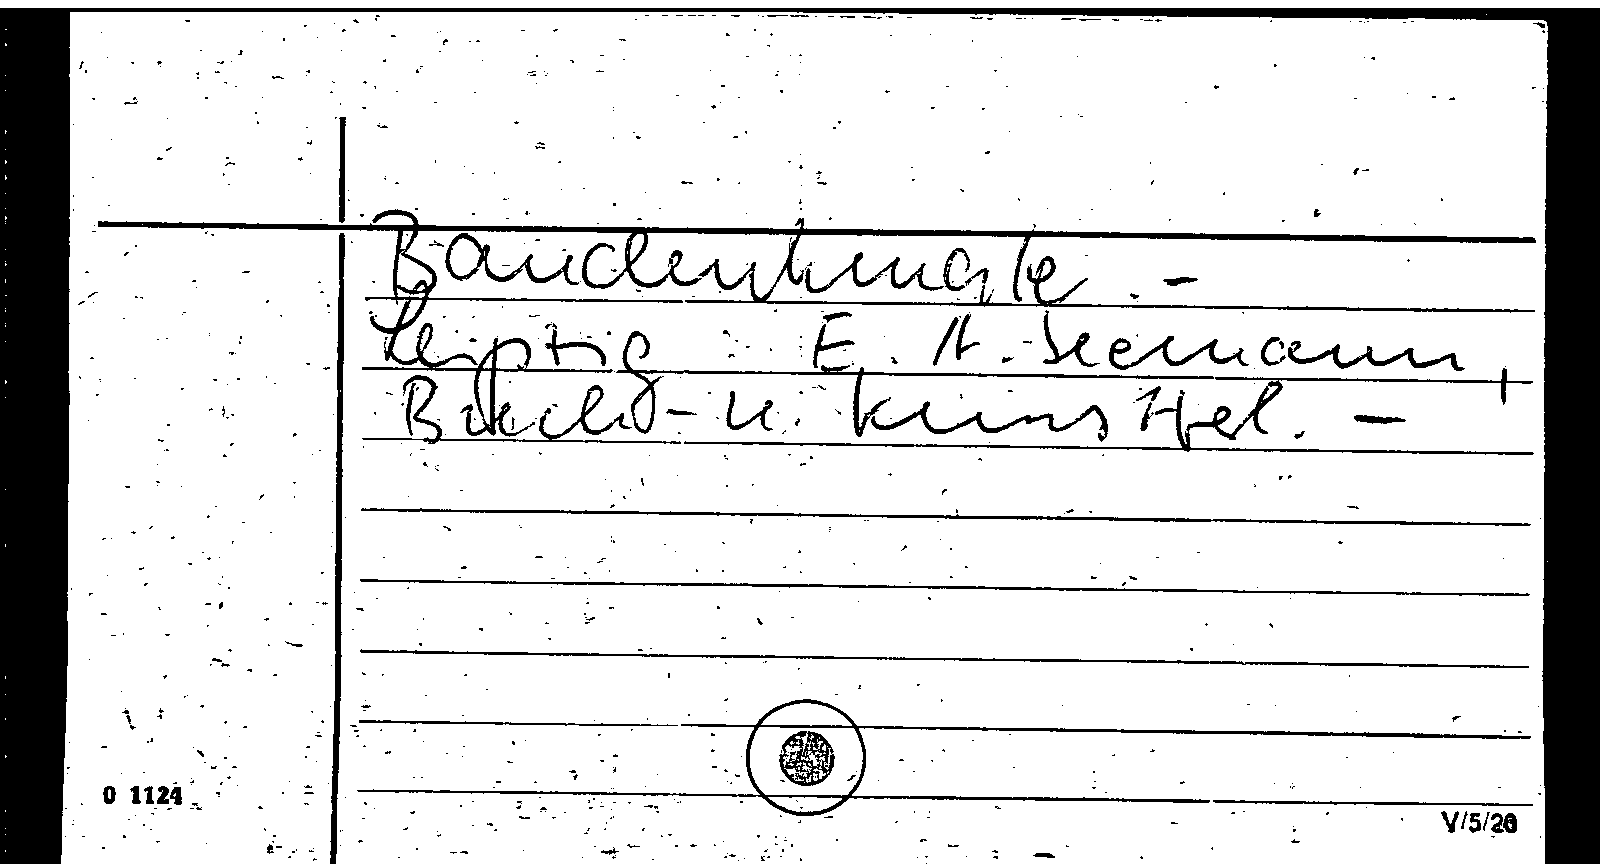 Baudenkmale. -
Leipzig : E. A. Seemann,
Buch- u. Kunstverl. -
0 1124
V/5/26